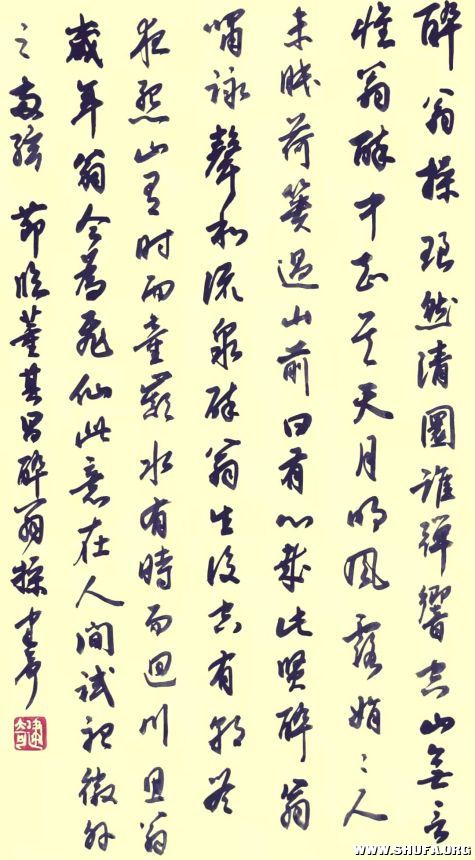 醉翁操琅然清圜誰彈響空山無言
惟翁醉中知其天月明風露娟〻人
未眠荷蕢過山前曰有心哉此賢醉翁
嘯詠聲和流泉醉翁去後空有朝吟
夜怨山有时而童巔水有時而迴川思翁
歲年翁今為飛仙此意在人間試聽徽外
兩弦 節臨董其昌醉翁操
WWW.SHUFA.ORG